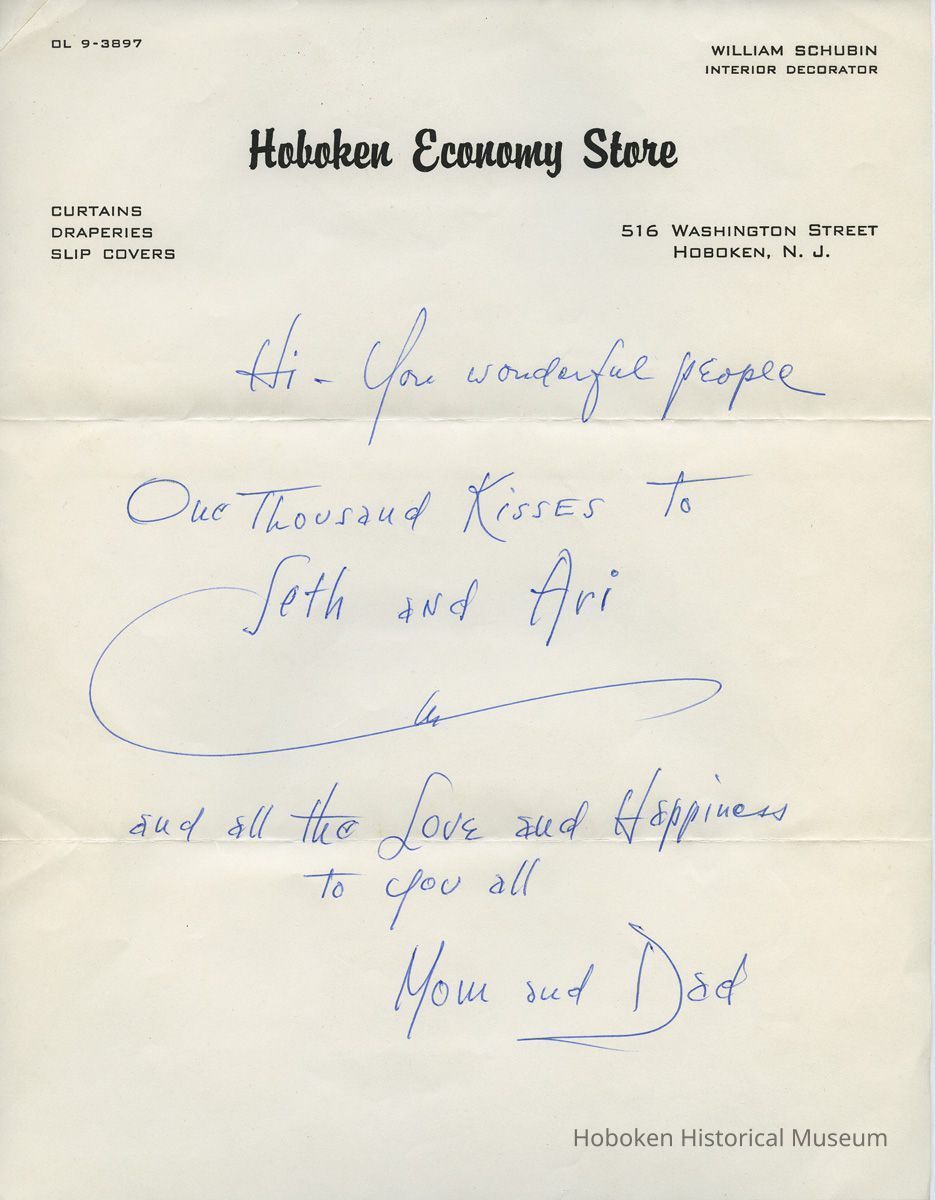 OL 9-3897
WILLIAM SCHUBIN
INTERIOR DECORATOR
Hoboken Economy Store
CURTAINS
DRAPERIES
SLIP COVERS
516 WASHINGTON STREET
HOBOKEN, N. J.
Hi - You wonderful people
One Thousand Kisses to
Seth and Ari
and all the Love and Happiness
to you all
Mom and Dad
Hoboken Historical Museum